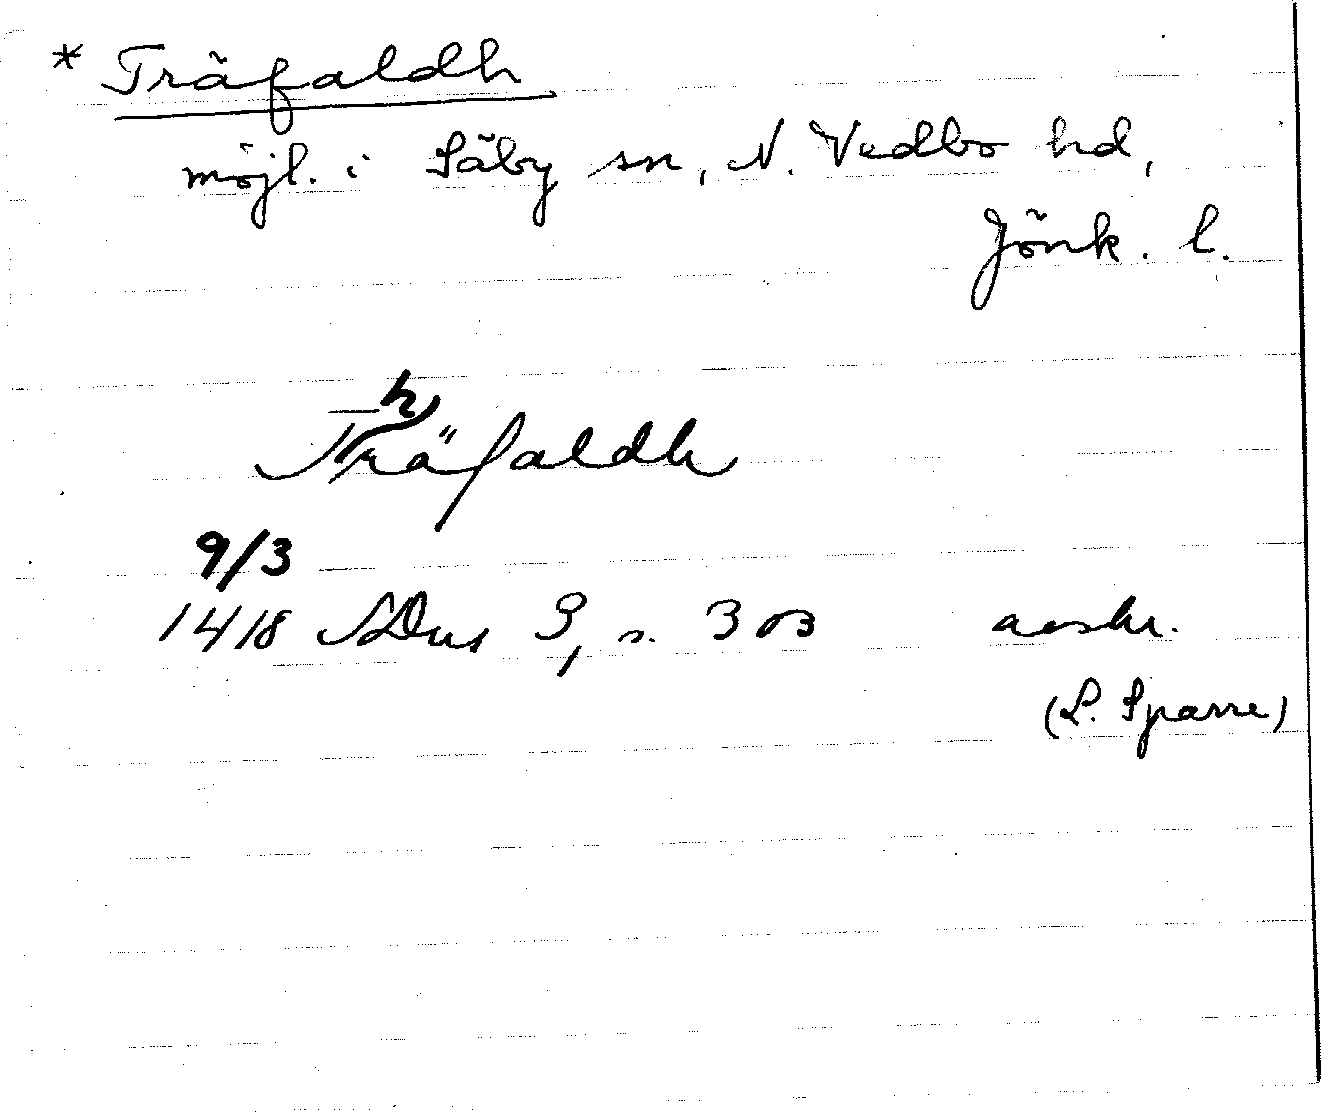 * Träfaldh
möjl. i Säby sn, N. Vedbo hd,
Jönk. l.
h
Träfaldh
9/3
1418 SDns 3, s. 303 avskr.
(L. Sparre)